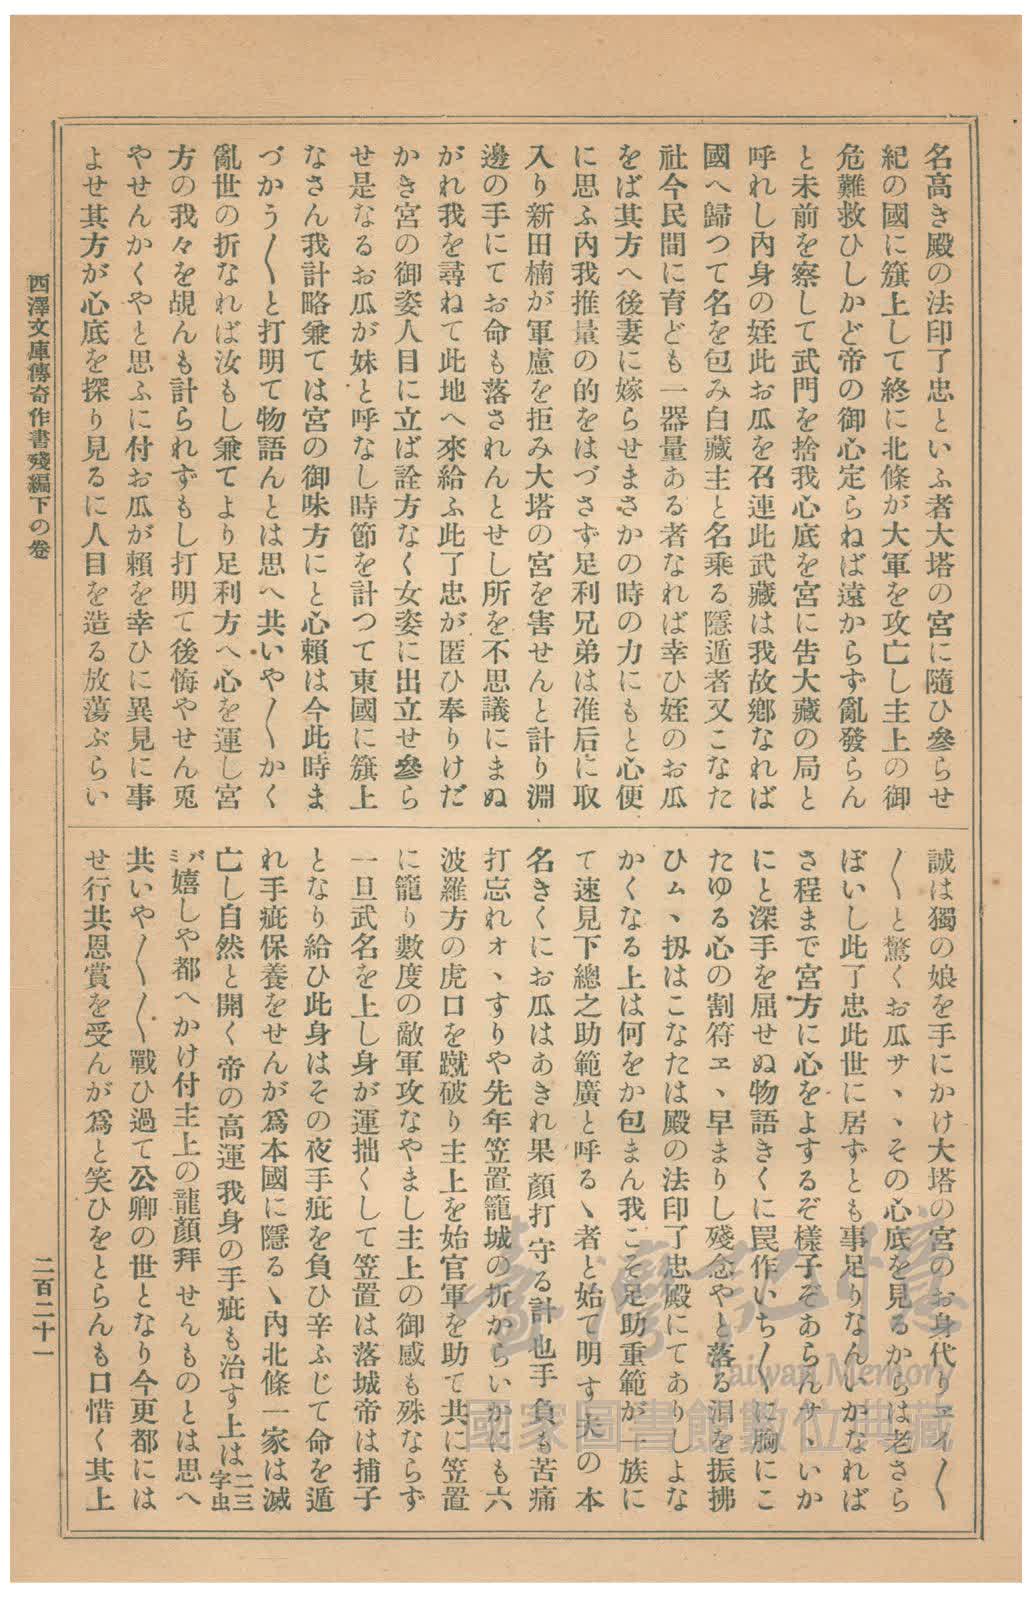 名高き殿の法印了忠といふ者大塔の宮に隨ひ參らせ
紀の國に籏上して終に北條が大軍を攻亡し主上の御
危難救ひしかど帝の御心定らねば遠からず亂發らん
と未前を察して武門を捨我心底を宮に告大藏の局と
呼れし內身の姪此お瓜を召連此武藏は我故鄕なれば
國へ歸つて名を包み白藏主と名乘る隱遁者又こなた
社今民間に育ども一器量ある者なれば幸ひ姪のお瓜
をば其方へ後妻に嫁らせまさかの時の力にもと心便
に思ふ內我推量の的をはづさず足利兄弟は准后に取
入り新田楠が軍慮を拒み大塔の宮を害せんと計り淵
邊の手にてお命も落されんとせし所を不思議にまぬ
がれ我を尋ねて此地へ來給ふ此了忠が匿ひ奉りけだ
かき宮の御姿人目に立ば詮方なく女姿に出立せ參ら
せ是なるお瓜が妹と呼なし時節を計つて東國に籏上
なさん我計略兼ては宮の御味方にと心賴は今此時ま
づかう〳〵と打明て物語んとは思へ共いや〳〵かく
亂世の折なれば汝もし兼てより足利方へ心を運し宮
方の我々を覘んも計られずもし打明て後悔やせん兎
やせんかくやと思ふに付お瓜が賴を幸ひに異見に事
よせ其方が心底を探り見るに人目を造る放蕩ぶらい
誠は獨の娘を手にかけ大塔の宮のお身代りヱイ〳〵
〳〵と驚くお瓜サヽヽその心底を見るからは老さら
ぼいし此了忠此世に居ずとも事足りなんいかなれば
さ程まで宮方に心をよするぞ樣子ぞあらんサヽいか
にと深手を屈せぬ物語きくに罠作いち〳〵に胸にこ
たゆる心の割符ヱヽ早まりし殘念やと落る泪を振拂
ひムヽ扨はこなたは殿の法印了忠殿にてありしよな
かくなる上は何をか包まん我こそ足助重範が一族に
て速見下總之助範廣と呼るヽ者と始て明す夫の本
名きくにお瓜はあきれ果顏打守る計也手負も苦痛
打忘れオヽすりや先年笠置籠城の折からいかにも六
波羅方の虎口を蹴破り主上を始官軍を助て共に笠置
に籠り數度の敵軍攻なやまし主上の御感も殊ならず
一旦武名を上し身が運拙くして笠置は落城帝は捕子
となり給ひ此身はその夜手疵を負ひ辛ふじて命を遁
れ手疵保養をせんが爲本國に隱るヽ內北條一家は滅
亡し自然と開く帝の高運我身の手疵も治す上は二三字虫
バミ嬉しや都へかけ付主上の龍顏拜せんものとは思へ
共いや〳〵〳〵戰ひ過て公卿の世となり今更都には
せ行共恩賞を受んが爲と笑ひをとらんも口惜く其上
西澤文庫傳奇作書殘編下の卷
二百二十一
臺灣記憶
Taiwan Memory
國家圖書館數位典藏